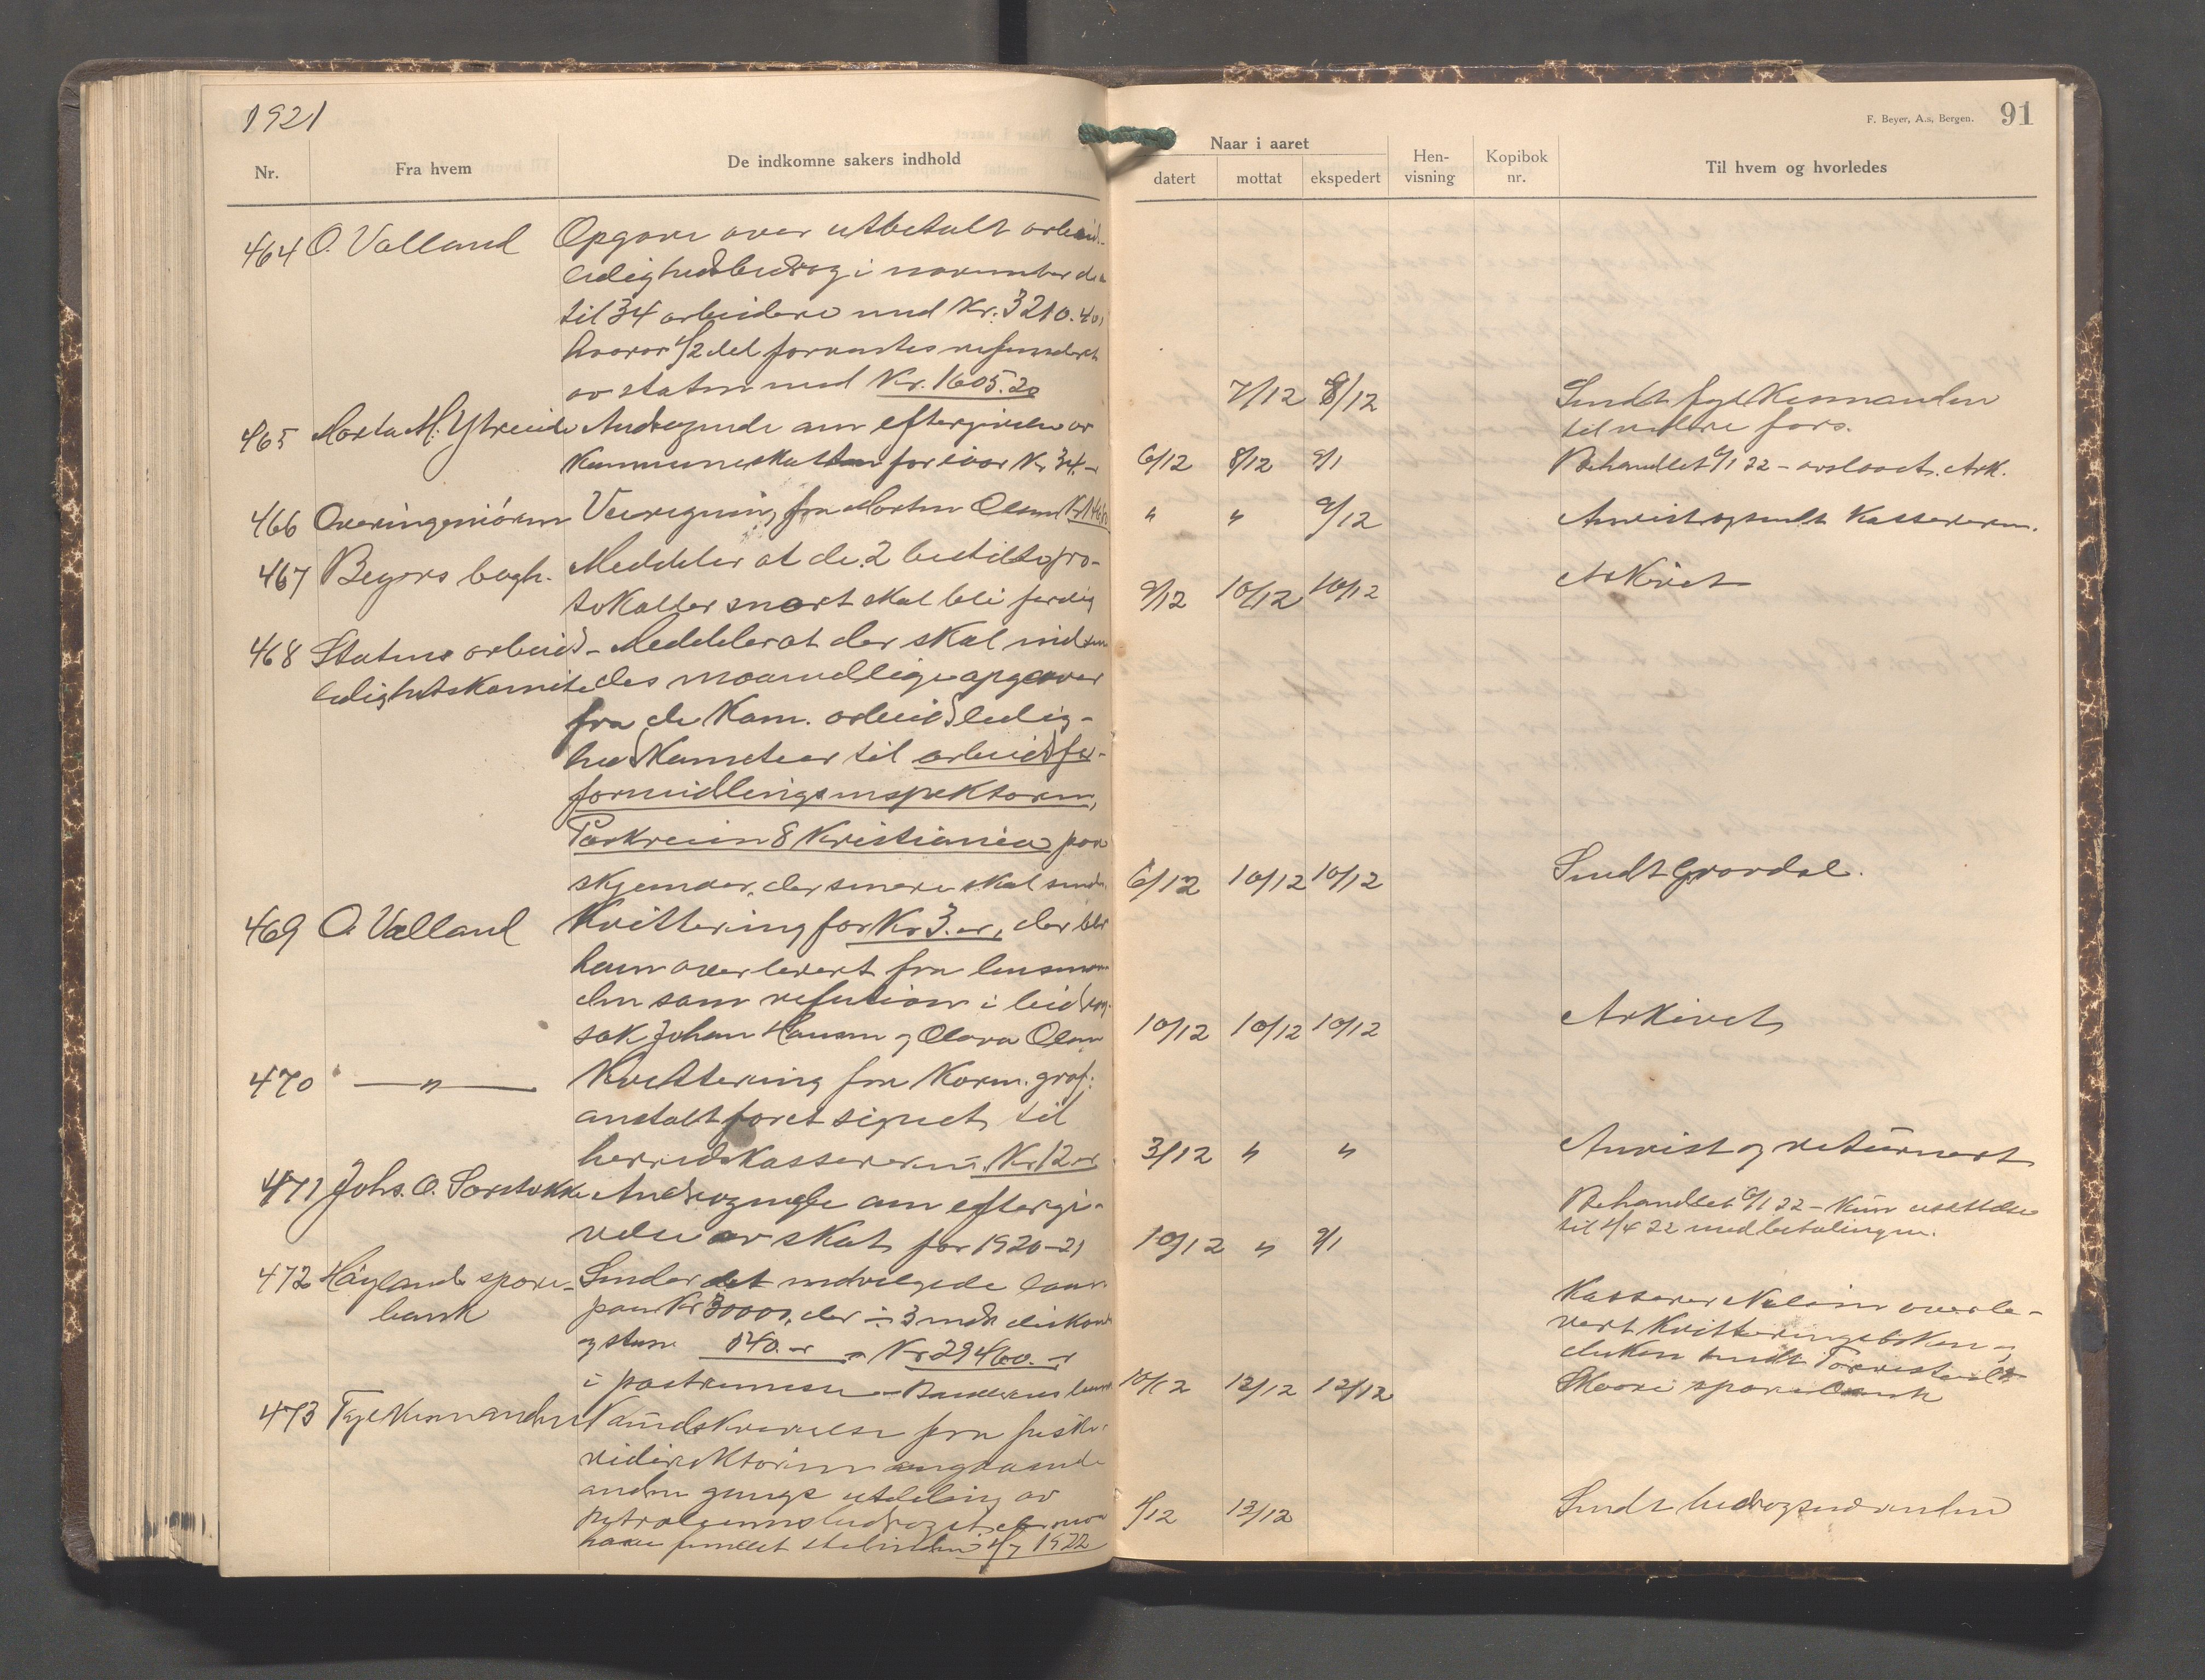 1921
F. Beyer, A.s, Bergen. 91
Nr. Fra hvem De indkomne sakers indhold
Naar i aaret
datert mottat ekspedert
Hen-
visning
Kopibok
nr.
Til hvem og hvorledes
464 O. Valland Opgave over utbetalt arbeid-
ledighedsbidrag i november
til 34 arbeidere med Kr. 3210.40,
hvorav 1/2 del forventes refunderet
av staten med Kr. 1605.20 7/12 8/12 Sendt fylkesmanden
til videre fors.
465 M. Ytreeide Andragende om eftergivelse av
Kommuneskatten for iaar Kr 34.- 6/12 8/12 9/1 Behandlet 6/1 22 - avslaaet. Ark.
466 Overingeniøren Veiregning fra Morten Olsen " " 9/12 Anvist og sendt Kassereren.
467 Beyers bogh. Meddeler at de 2 bestilte pro-
tokoller snart skal bli færdig 9/12 10/12 10/12 Arkivet
468 Statens arbeids- Meddeler at der skal
ledighetskomite des maanedlige opgaver
fra de Kom. arbeidsledig-
heds Komiteer til arbeidsfor-
formidlingsinspektøren,
Parkveien 8 Kristiania paa
skjemaer, der senere skal 6/12 10/12 10/12 Sendt Grovdal.
469 O. Valland Kvittering for Kr 3.-, der blev
ham overlevert fra lensman
den som refusion i bidrag
sak Johan Hansen og Olava Olsen 10/12 10/12 10/12 Arkivet
470 — " — Kvittering fra Korm. graf.
anstalt for et signet til
herredskassereren Kr 12.- 3/12 " " Anvist og returnert
471 Johs. O. Sørstokke Andragende om eftergi-
velse av skat for 1920-21 10/12 " 9/1 Behandlet 6/1 22 - Kun utsættelse
til 1/4 22 med betalingen.
472 Høyland spare-
bank
Sender det indvilgede laan
paa Kr 30000, der ÷ 3 mdr diskonto
og stem 540.- = Kr 29460.-
i postremisse - 10/12 12/12 12/12 Kasserer overle-
vert Kvitteringsboken og
sendt
Skaare sparebank
473 Fylkesmanden Rundskrivelse fra fiske-
ridirektøren angaaende
anden gangs utdeling av
petroleumsbidraget
være fundet sted inden 1/7 1922 9/12 13/12 Sendt